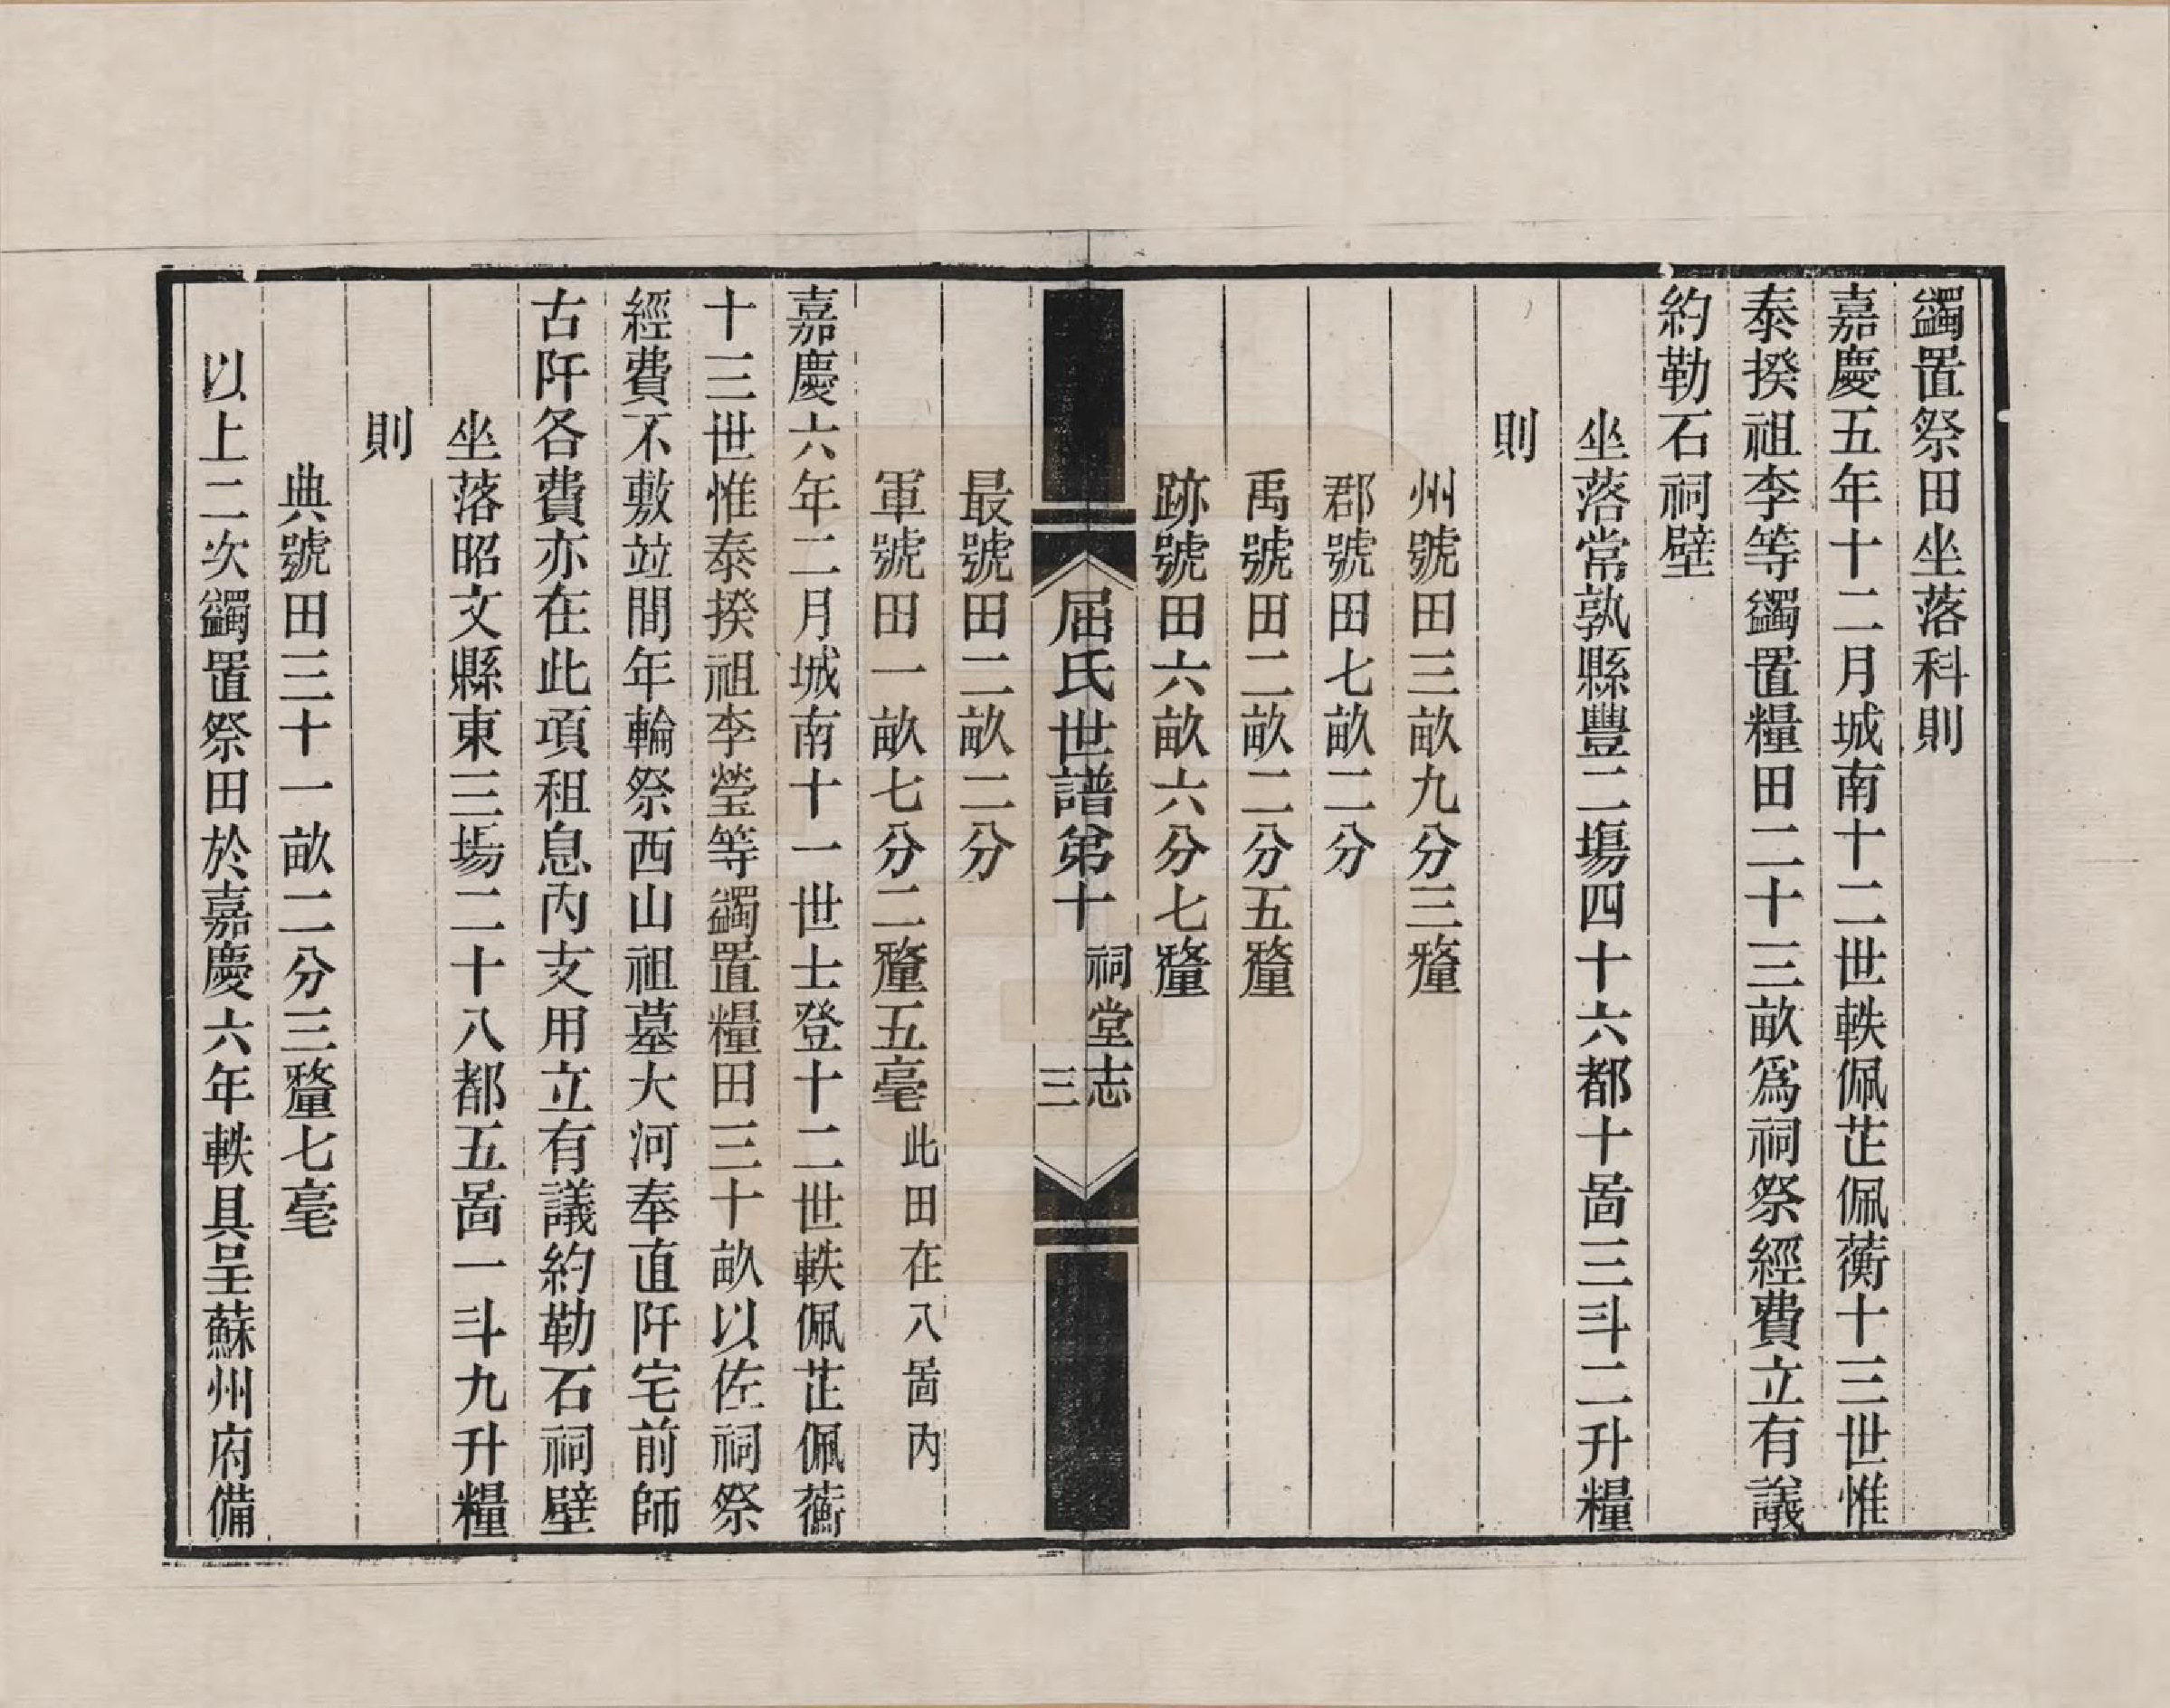 蠲置祭田坐落科則
嘉慶五年十二月城南十二世軼佩芷佩蘅十三世惟
泰揆祖李等蠲置糧田二十三畝爲祠祭經費立有議
約勒石祠壁
坐落常孰縣豐二場四十六都十啚三斗二升糧
則
州號田三畝九分三釐
郡號田七畝二分
禹號田二畝二分五釐
跡號田六畝六分七釐
屈氏世譜弟十 祠堂志 三
最號田二畝二分
軍號田一畝七分二釐五毫此田在八啚內
嘉慶六年二月城南十一世士登十二世軼佩芷佩蘅
十三世惟泰揆祖李瑩等蠲置糧田三十畝以佐祠祭
經費不敷竝間年輪祭西山祖墓大河奉直阡宅前師
古阡各費亦在此項租息內支用立有議約勒石祠壁
坐落昭文縣東三場二十八都五啚一斗九升糧
則
典號田三十一畝二分三釐七毫
以上二次蠲置祭田於嘉慶六年軼具呈蘇州府備